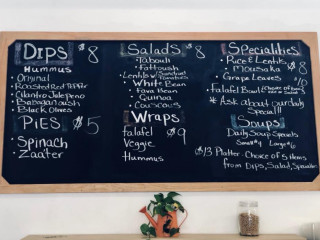 DIPS $8
Hummus
• Original
• Roasted Red Pepper
• Cilantro Jalepeno
• Babaganoush
• Black Olives
PIES $5
• Spinach
• Zaater
SALADS $8
• Tabouli
• Fattoush
• Lentils w/ Sundried Tomatoes
• White Bean
• Fava Bean
• Quinoa
• Couscous
Wraps $9
falafel
Veggie
Hummus
Specialities
• Rice & Lentils $8
Mousaka
• Grape Leaves
• Falafel Bowl
* Ask about our daily
Special!!
Soups
Daily Soup Specials
Small $4 Large $6
$13 Platter - Choice of 5 items
from Dips, Salad, Specialties